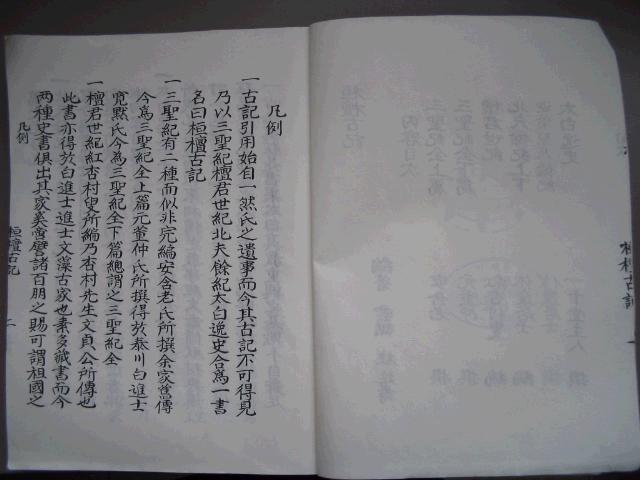 凡例
一古記引用始自一然氏之遺事而今其古記不可得見
乃以三聖紀檀君世紀北夫餘紀太白逸史合爲一書
名曰桓檀古記
一三聖紀有二種而似非完編安含老氏所撰余家舊傳
今爲三聖紀全上篇元董仲氏所撰得於泰川白進士
寬黙氏今爲三聖紀全下篇總謂之三聖紀全
一檀君世紀紅杏村叟所編乃杏村先生文貞公所傳也
此書亦得於白進士進士文藻古家也素多藏書而今
兩種史書俱出其家奚啻譬諸百朋之賜可謂祖國之
凡例
桓檀古記
二
桓檀古記
一